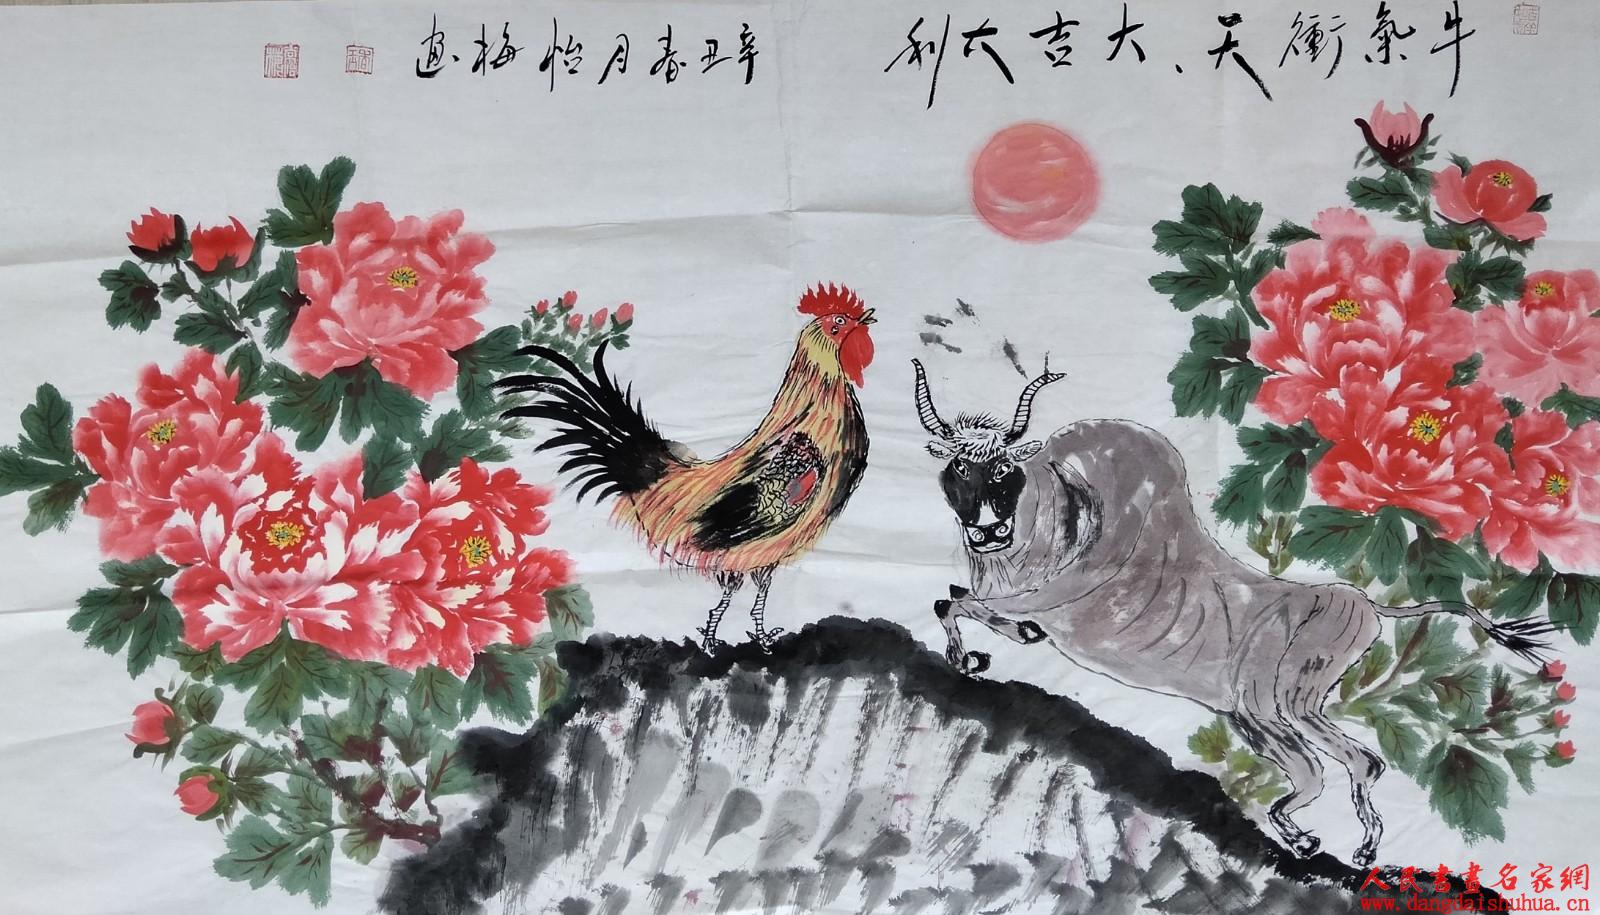 牛氣衝天、大吉大利
辛丑春月怡梅画
人民書畫名家網
www.dangdaishuhua.cn